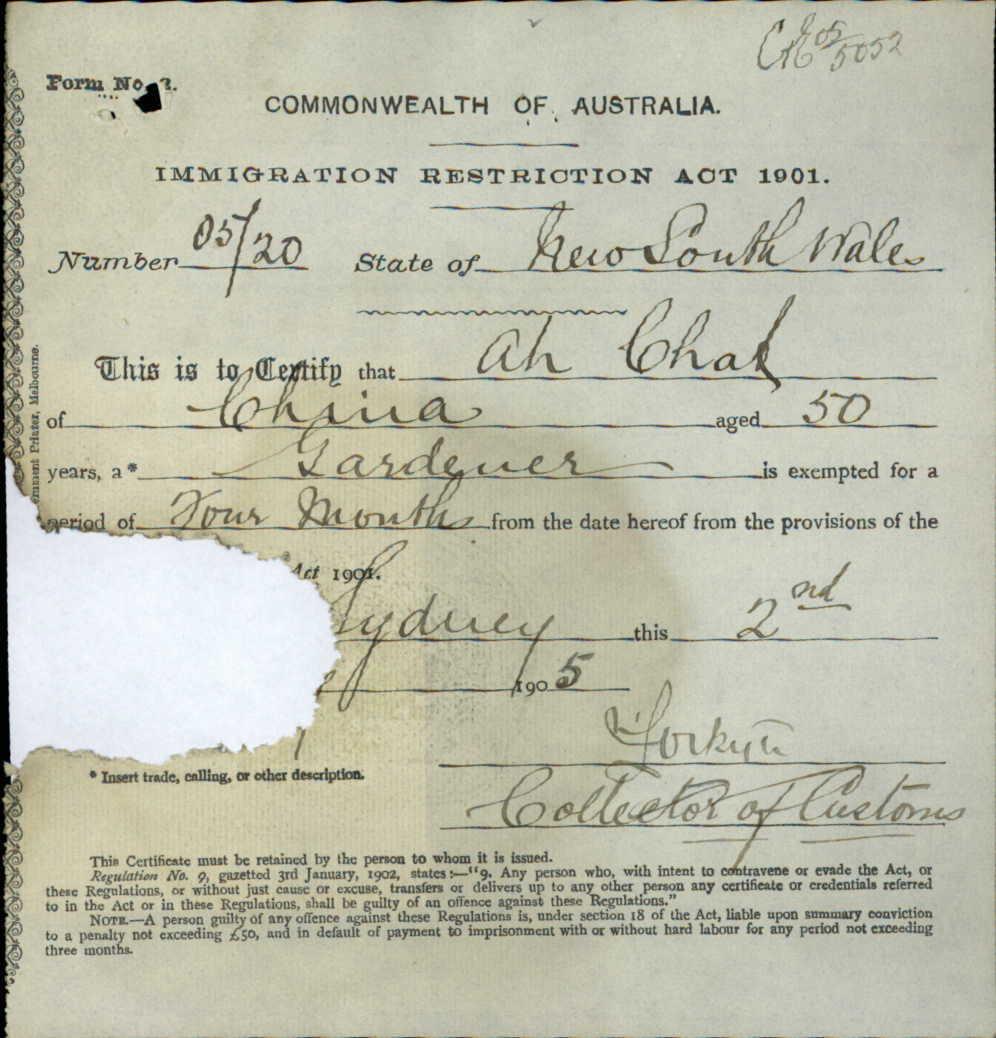 05/5052
Form No.
COMMONWEALTH OF AUSTRALIA.
IMMIGRATION RESTRICTION ACT 1901.
Number 05/20 State of New South Wales
This is to Certify that Ah Chak
of China aged 50
years, a* Gardener is exempted for a
period of Four Months from the date hereof from the provisions of the
Act 1901.
Sydney this 2nd
1905
Collector of Customs
* Insert trade, calling, or other description.
This Certificate must be retained by the person to whom it is issued.
Regulation No. 9, gazetted 3rd January, 1902, states:—"9. Any person who, with intent to contravene or evade the Act, or
these Regulations, or without just cause or excuse, transfers or delivers up to any other person any certificate or credentials referred
to in the Act or in these Regulations, shall be guilty of an offence against these Regulations."
NOTE.—A person guilty of any offence against these Regulations is, under section 18 of the Act, liable upon summary conviction
to a penalty not exceeding £50, and in default of payment to imprisonment with or without hard labour for any period not exceeding
three months.
Printer, Melbourne.